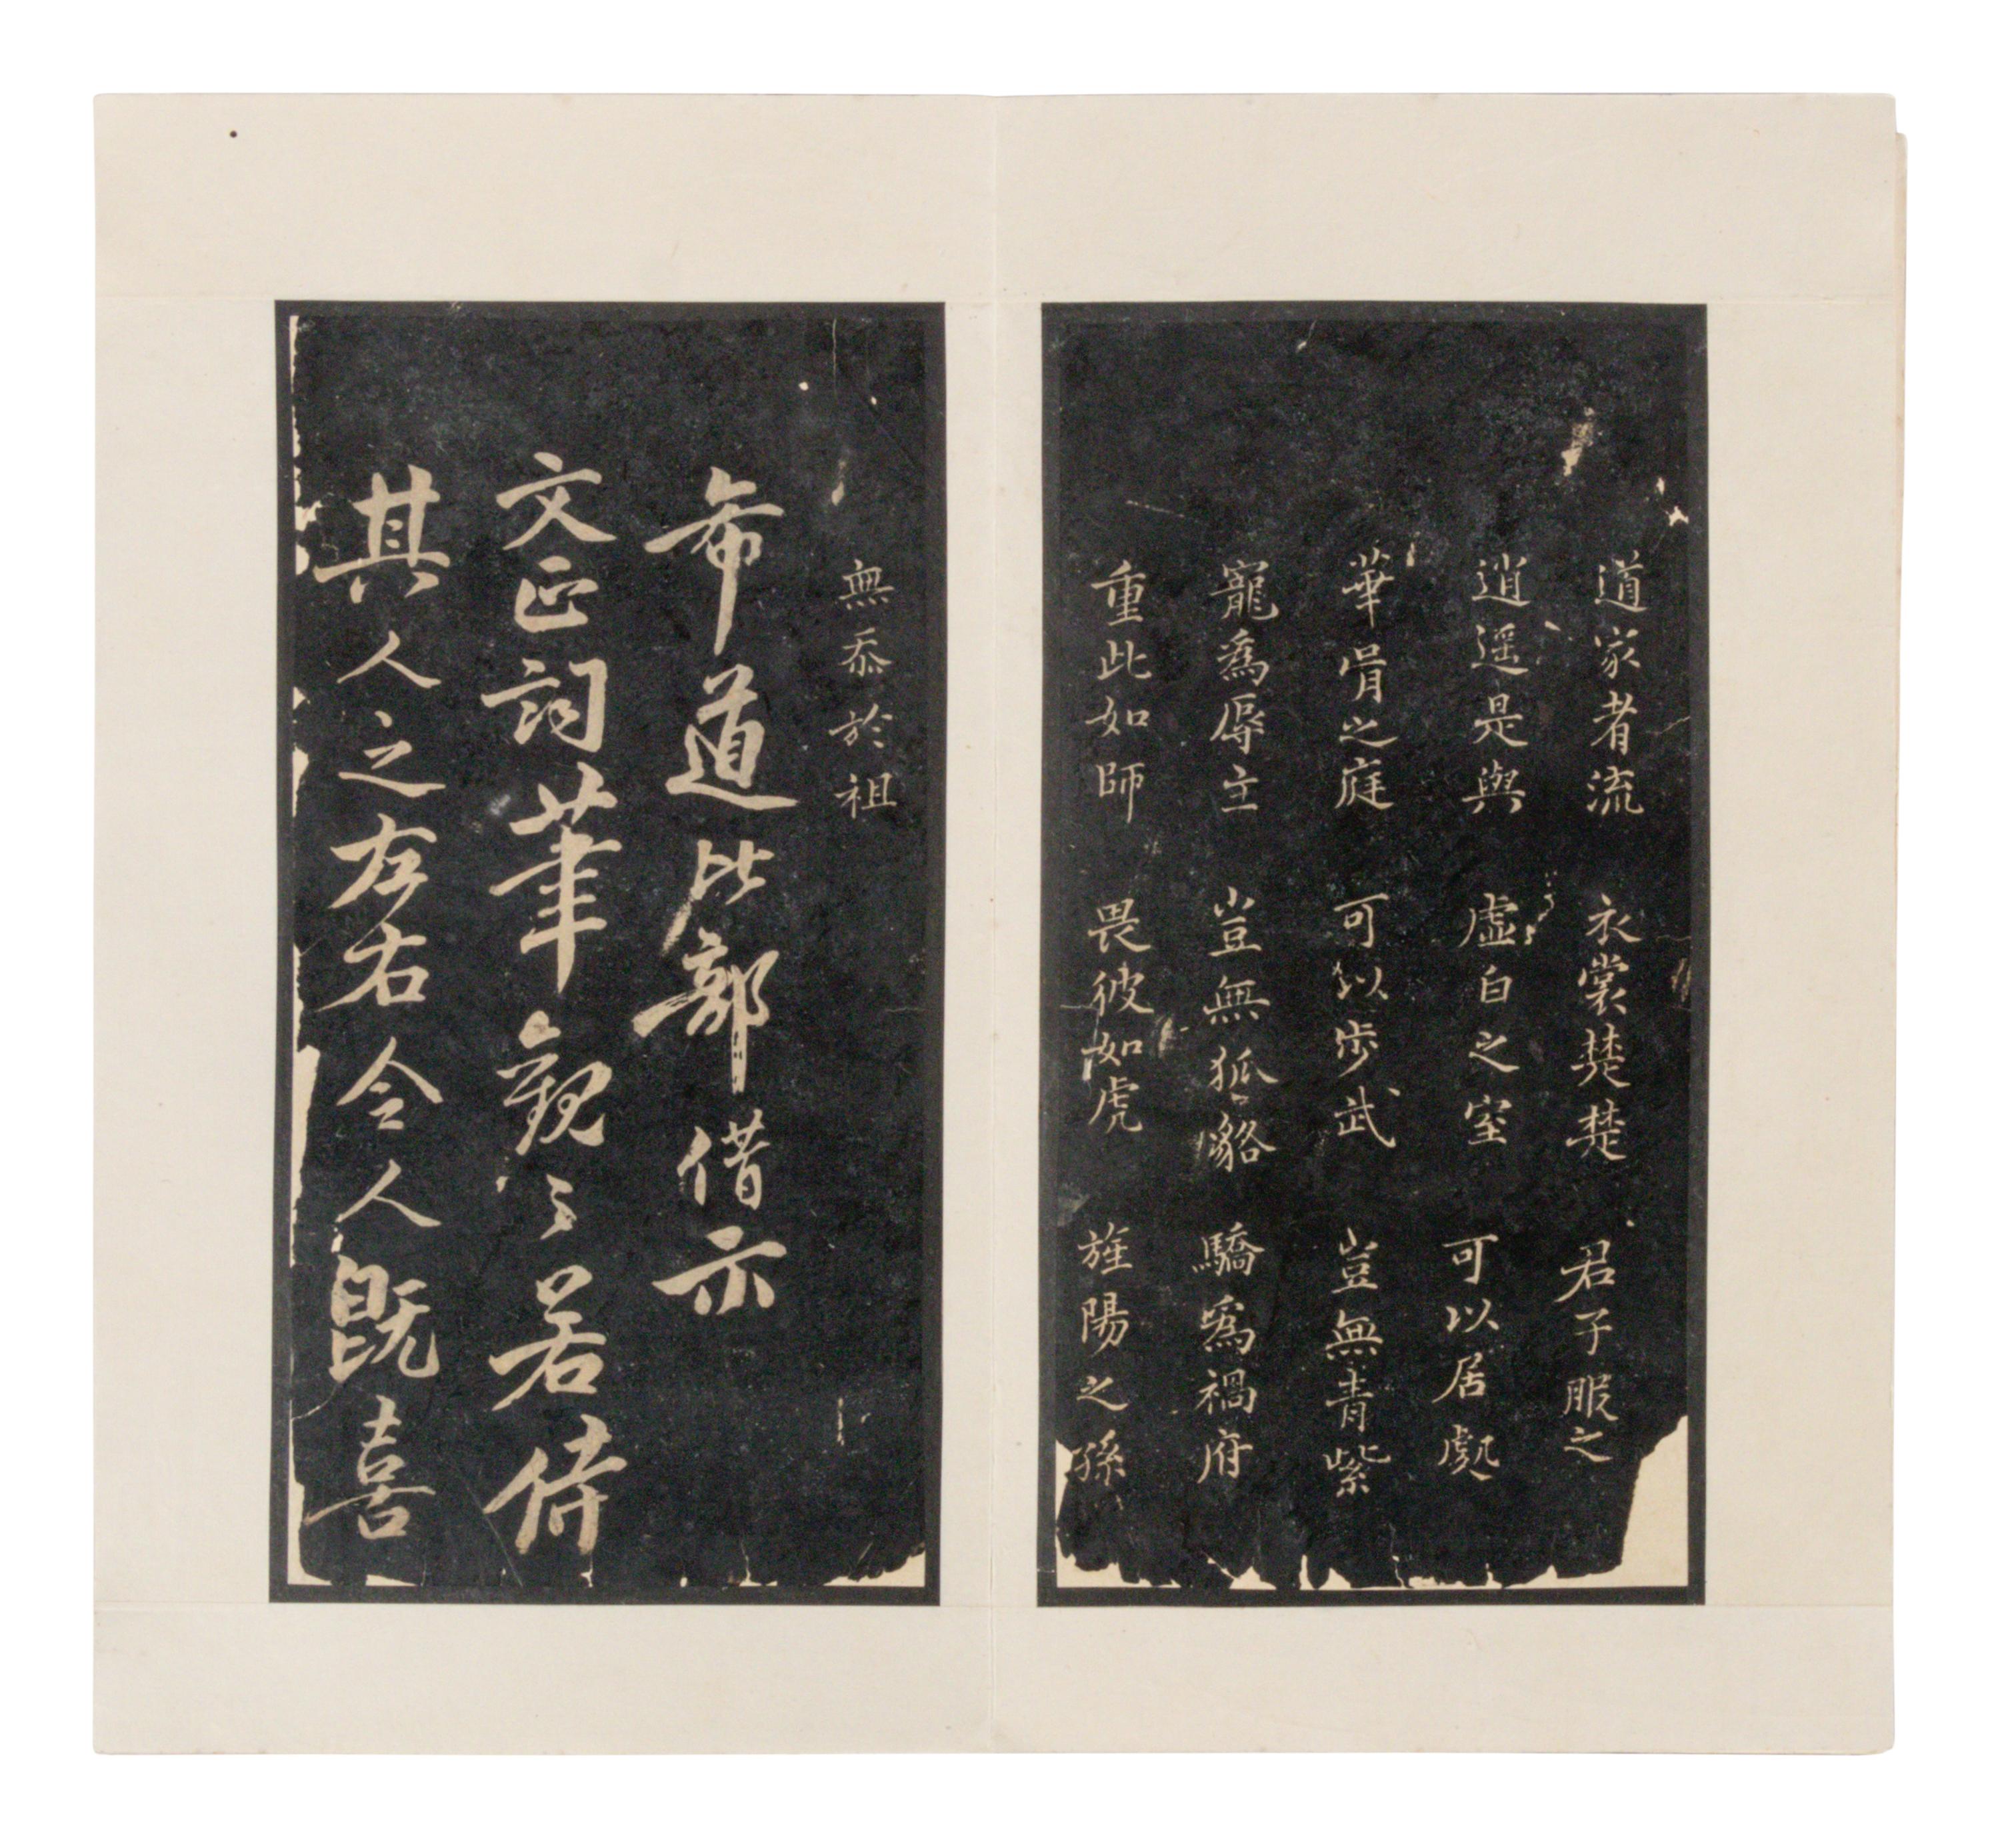 道家者流　衣裳楚楚　君子服之
逍遥是與　虛白之室　可以居處
華胥之庭　可以步武　豈無青紫
寵爲辱主　豈無狐貉　驕爲禍府
重此如師　畏彼如虎　旌陽之孫
無忝於祖
希道比部借示
文正詞筆觀之若侍
其人之左右令人既喜